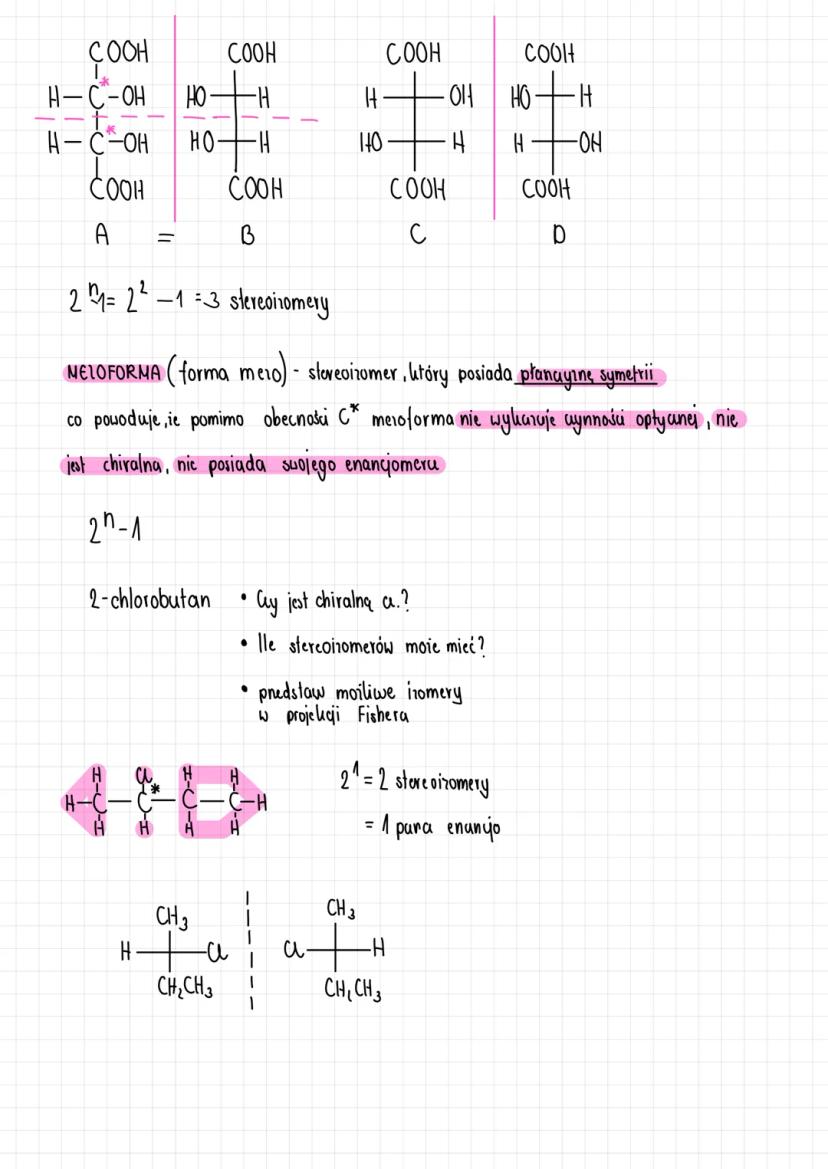 COOH COOH COOH COOH
H-C*-OH HO H H OH HO H
H-C*-OH HO H HO H H OH
COOH COOH COOH COOH
A = B C D
2ⁿ-1 = 2² - 1 = 3 stereoizomery
MEZOFORMA (forma mezo) - stereoizomer, który posiada płaszczyznę symetrii
co powoduje, że pomimo obecności C* mezoforma nie wykazuje czynności optycznej, nie
jest chiralna, nie posiada swojego enancjomeru
2ⁿ-1
2-chlorobutan • Czy jest chiralną cz.?
• Ile stereoizomerów może mieć?
• przedstaw możliwe izomery
w projekcji Fishera
H Cl H H
H-C-C*-C-C-H
H H H H
2¹ = 2 stereoizomery
= 1 para enancjo
CH₃ CH₃
H Cl Cl H
CH₂CH₃ CH₂CH₃